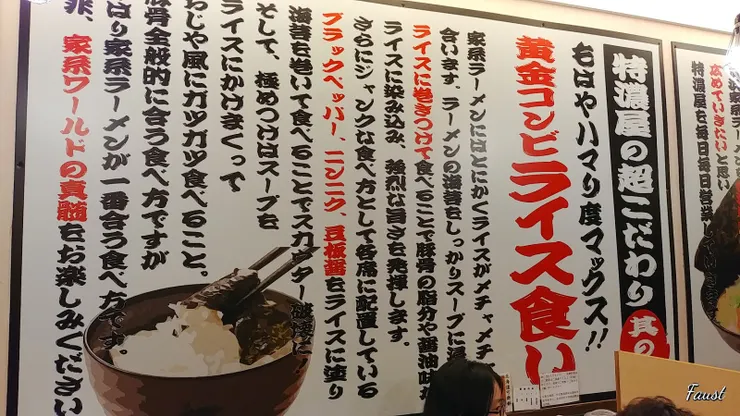 特濃屋の超こだわり 其の
もはやハマり度マックス!!
黄金コンビライス食い
家系ラーメンにはとにかくライスがメチャメチ
合います。ラーメンの海苔をしっかりスープに浸
ライスに巻きつけて食べることで豚骨の脂分や醤油味が
ライスに染み込み、強烈な旨さを発揮します。
さらにジャンクな食べ方として各席に配置している
ブラックペッパー、ニンニク、豆板醤をライスに塗り
海苔を巻いて食べることでスカウター
そして、極めつけはスープを
ライスにかけまくって
おじや風にガツガツ食べること。
豚骨全般的に合う食べ方ですが
はり家系ラーメンが一番合う食べ方です。
非、家系ワールドの真髄をお楽しみください
広めていきたいと思い
特濃屋を毎日毎日営業して
Faust